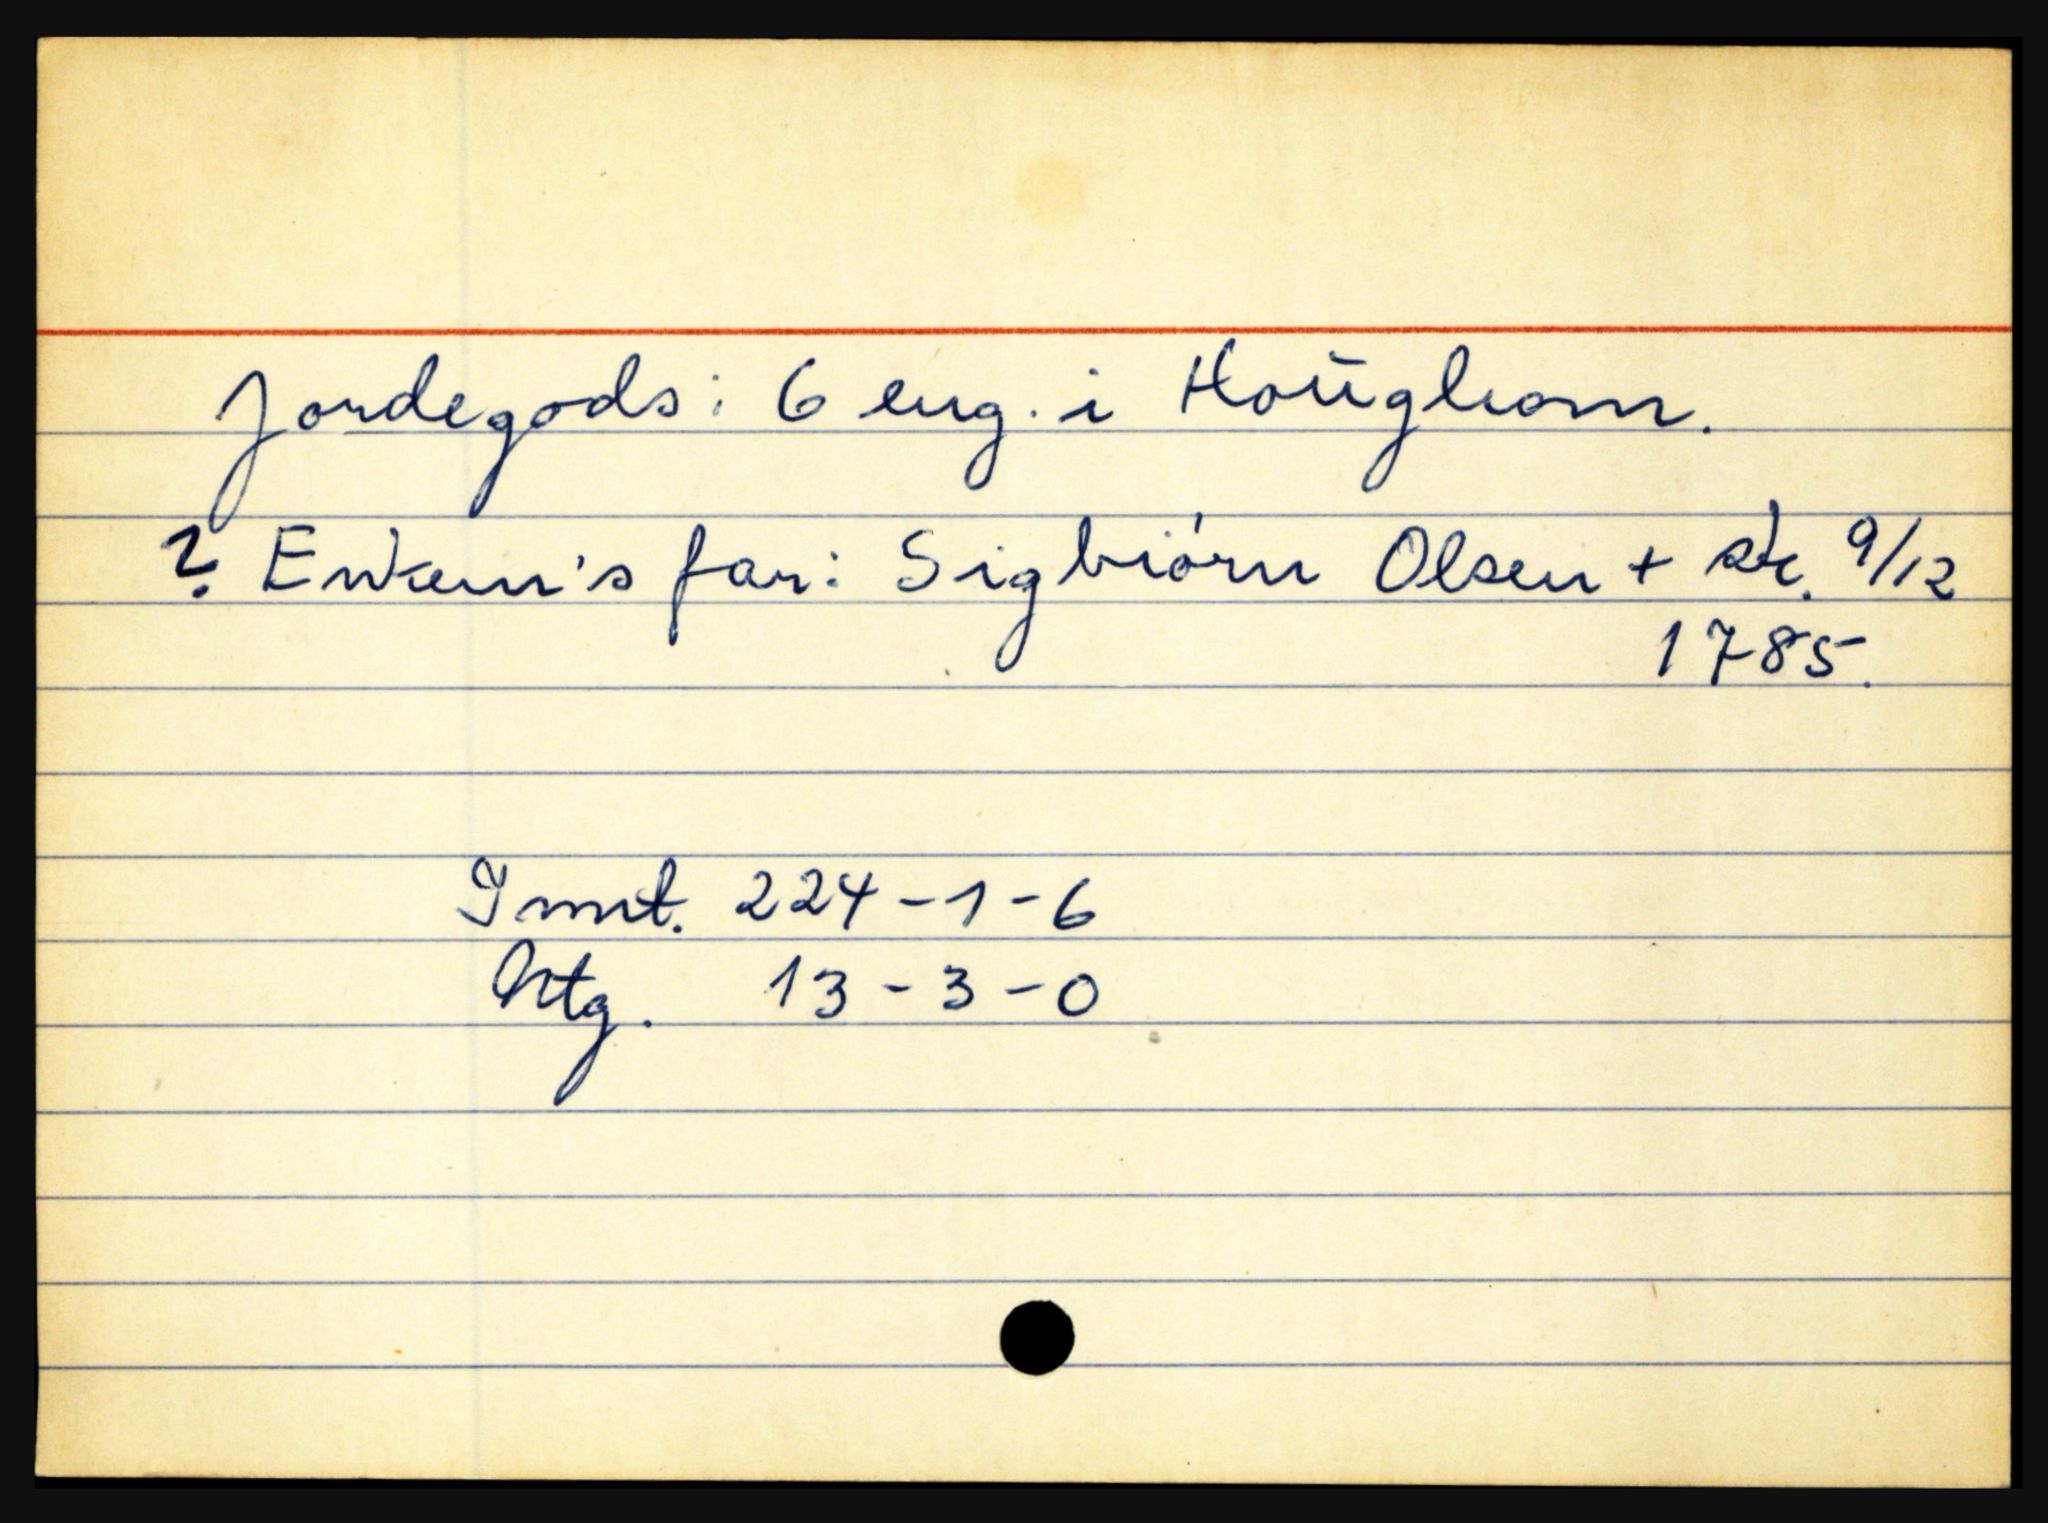 Jordegods: 6 eng. i Hoŭghom.
? Enken's far: Sigbiórn Olsen + sk. 9/12
1785.
Innt. 224-1-6
Utg. 13-3-0